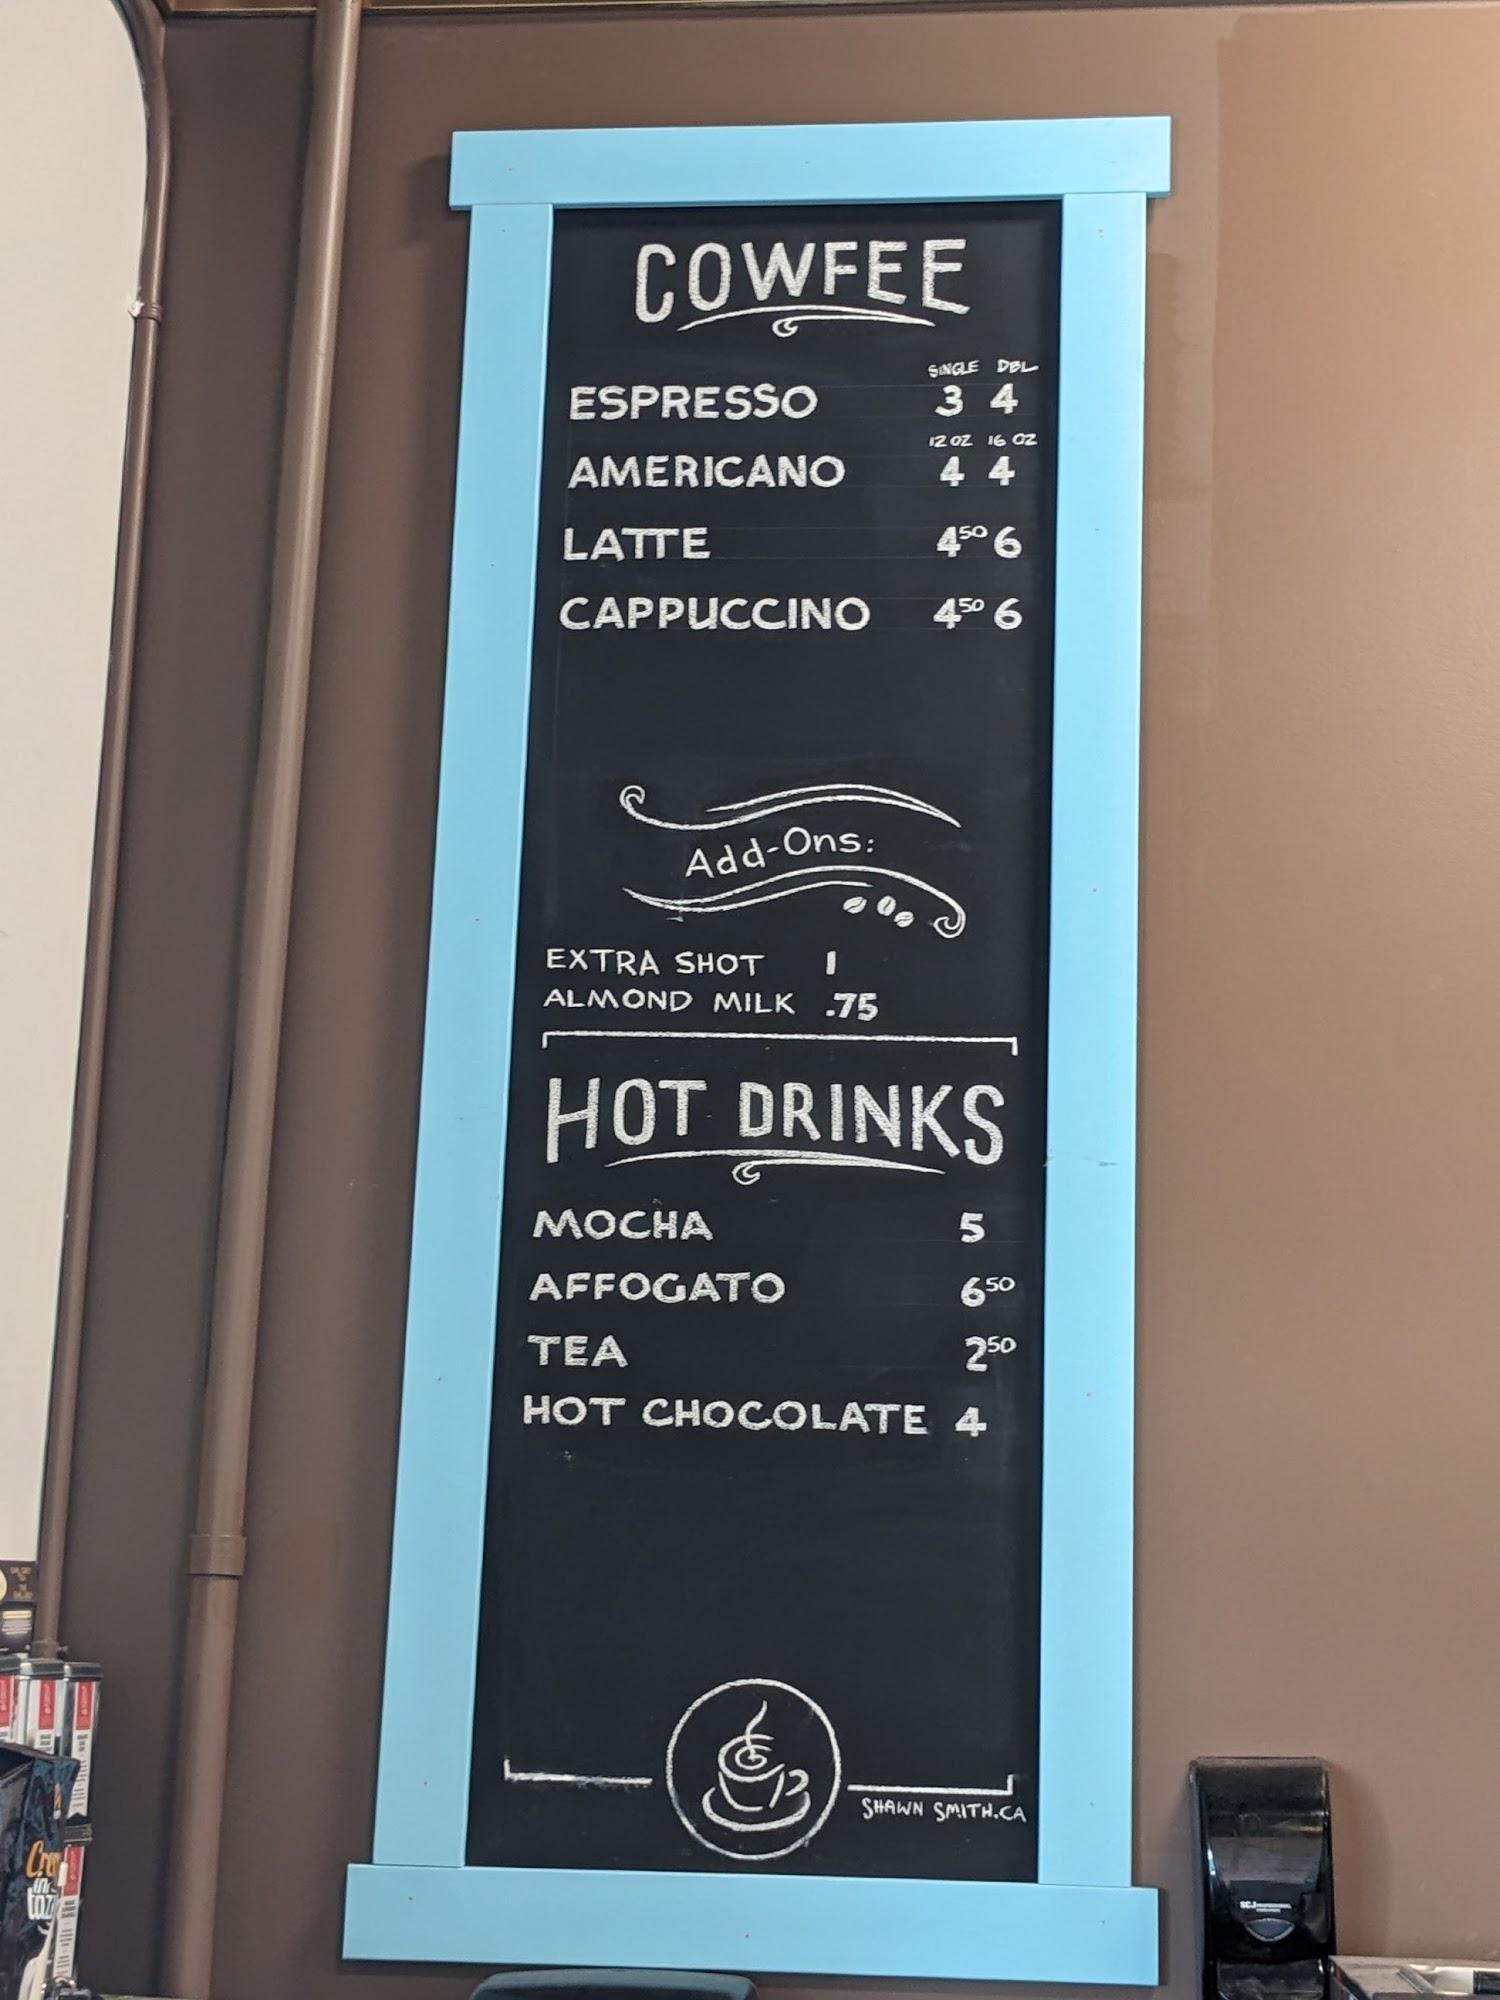 COWFEE
SINGLE DBL
ESPRESSO 3 4
12 OZ 16 OZ
AMERICANO 4 4
LATTE 4⁵⁰ 6
CAPPUCCINO 4⁵⁰ 6
Add-Ons:
EXTRA SHOT 1
ALMOND MILK .75
HOT DRINKS
MOCHA 5
AFFOGATO 6⁵⁰
TEA 2⁵⁰
HOT CHOCOLATE 4
SHAWN SMITH.CA
SCJ PROFESSIONAL